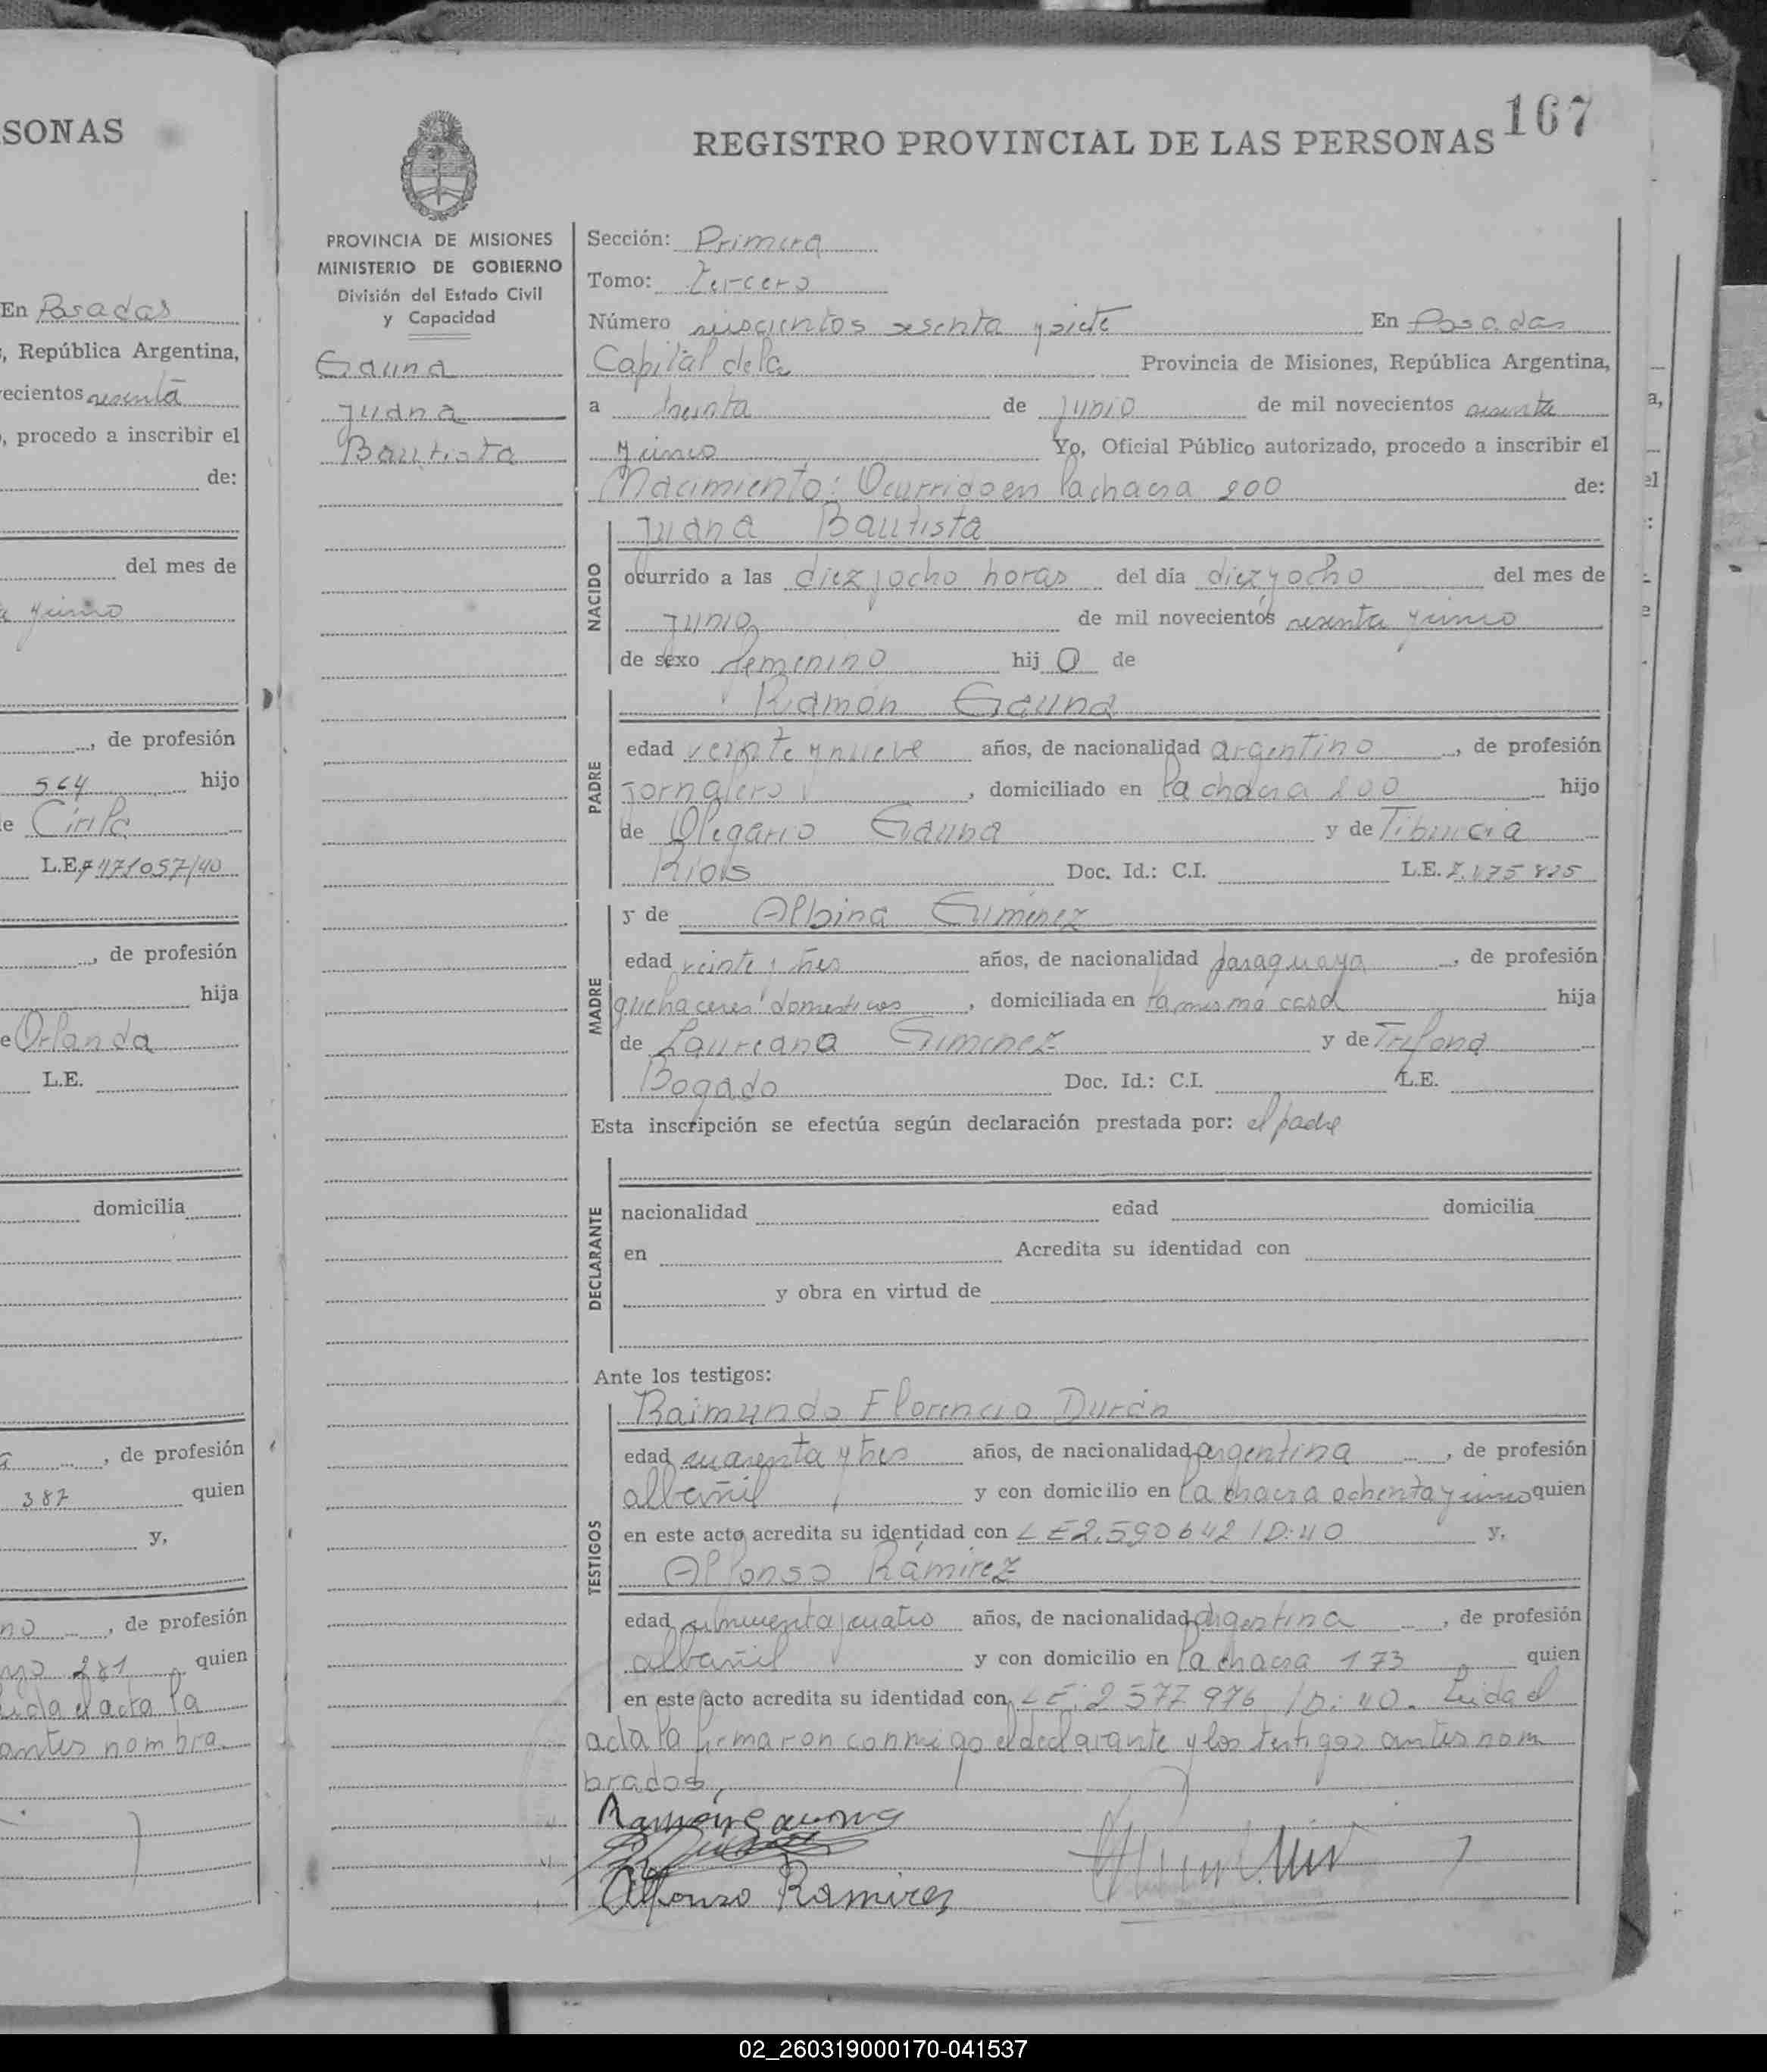 SONAS
En Posadas
, República Argentina,
ecientos sesenta
, procedo a inscribir el
de:
del mes de
a y cinco
, de profesión
564 hijo
e Cirila
L.E. 7471057/40
, de profesión
hija
e Orlanda
L.E.
domicilia
a , de profesión
387 quien
y,
no , de profesión
281 quien
Leida el acta la
antes nombra
167
REGISTRO PROVINCIAL DE LAS PERSONAS
PROVINCIA DE MISIONES
MINISTERIO DE GOBIERNO
División del Estado Civil
y Capacidad
Gauna
Juana
Bautista
Sección: Primera
Tomo: Tercero
Número seiscientos sesenta y siete En Posadas
Capital de la Provincia de Misiones, República Argentina,
a treinta de junio de mil novecientos sesenta
y cinco Yo, Oficial Público autorizado, procedo a inscribir el
Nacimiento: Ocurrido en la chacra 200 de:
NACIDO
Juana Bautista
ocurrido a las diez y ocho horas del día diez y ocho del mes de
junio de mil novecientos sesenta y cinco
de sexo femenino hij O de
PADRE
Ramón Gauna
edad veinte y nueve años, de nacionalidad argentino , de profesión
jornalero , domiciliado en la chacra 200 hijo
de Olegario Gauna y de Tiburcia
Rios Doc. Id.: C.I. L.E. 7.175 825
MADRE
y de Albina Gimenez
edad veinte y tres años, de nacionalidad paraguaya , de profesión
quehaceres domesticos , domiciliada en la misma casa hija
de Laureana Gimenez y de Trifona
Bogado Doc. Id.: C.I. L.E.
Esta inscripción se efectúa según declaración prestada por: el padre
DECLARANTE
nacionalidad edad domicilia
en Acredita su identidad con
y obra en virtud de
Ante los testigos:
TESTIGOS
Raimundo Florencio Durán
edad cuarenta y tres años, de nacionalidad argentina , de profesión
albañil y con domicilio en la chacra ochenta y cinco quien
en este acto acredita su identidad con LE 2.590642 / D: 40 y,
Alfonso Ramirez
edad cincuenta y cuatro años, de nacionalidad argentina , de profesión
albañil y con domicilio en la chacra 173 quien
en este acto acredita su identidad con LE: 2577976 / D: 40. Leida el
acta la firmaron conmigo el declarante y los testigos antes nom
brados.
Ramón Gauna
Alfonso Ramires
02_260319000170-041537